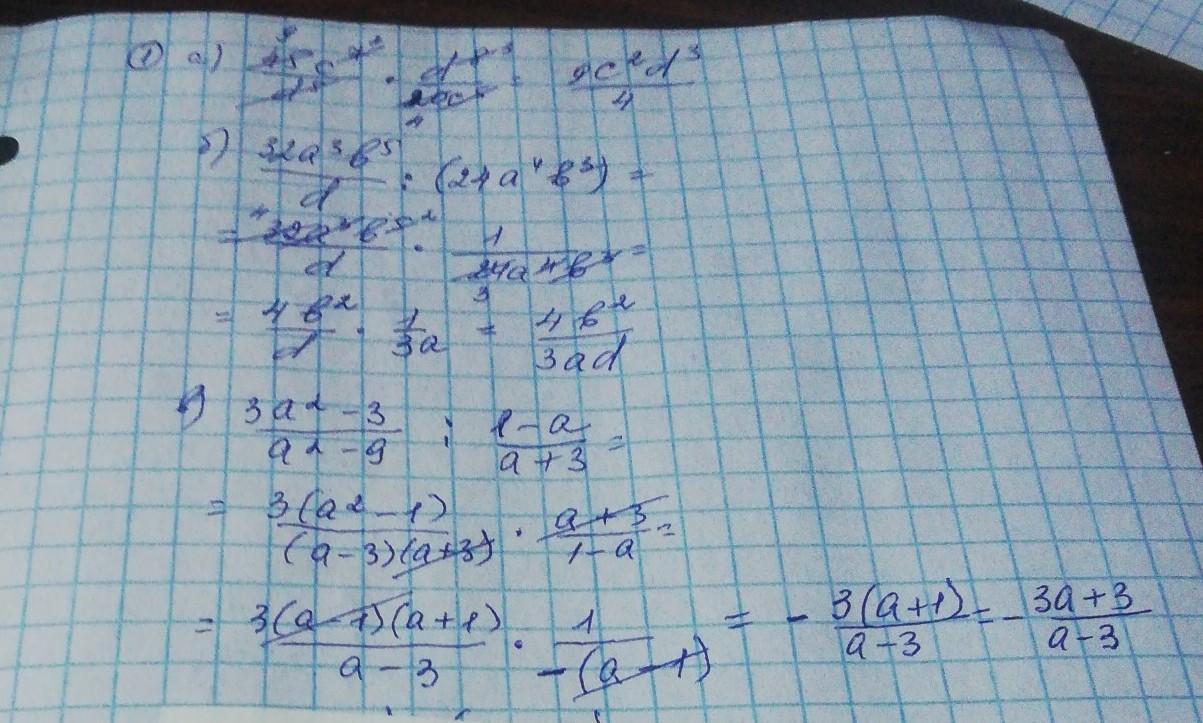 ① а) · = 9c²d³/4
б) 32a³b⁵/d : (24a⁴b³) =
= 32a³b⁵/d · 1/24a⁴b³ =
= 4b²/d · 1/3a = 4b²/3ad
в) 3a²-3/a²-9 : 1-a/a+3 =
= 3(a²-1)/(a-3)(a+3) · a+3/1-a =
= 3(a-1)(a+1)/a-3 · 1/-(a-1) = - 3(a+1)/a-3 = - 3a+3/a-3